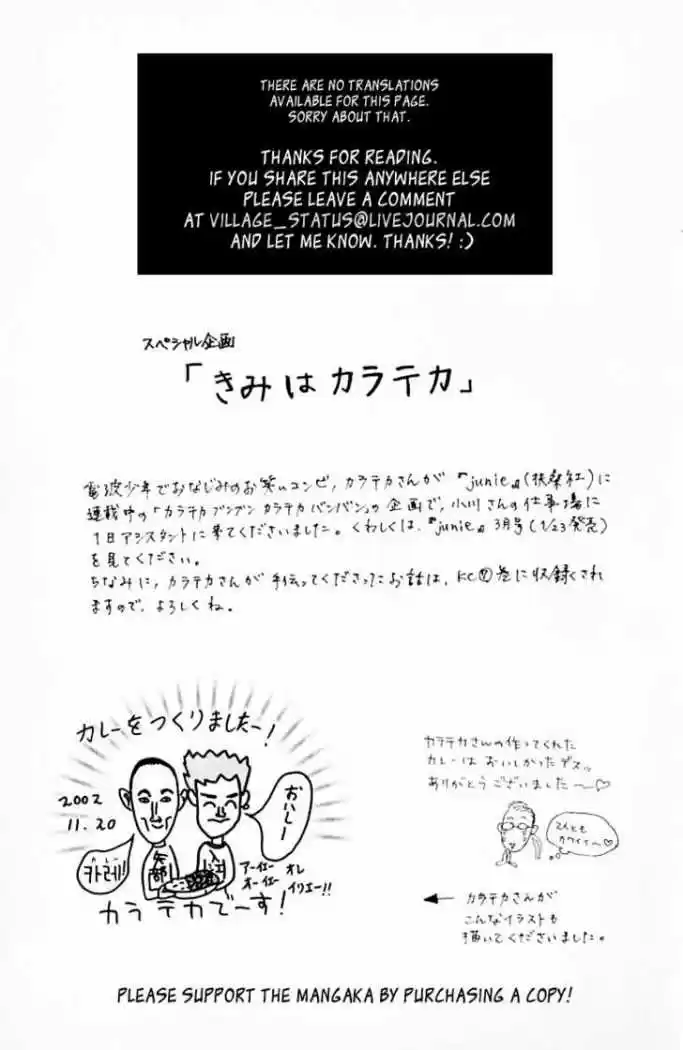 THERE ARE NO TRANSLATIONS
AVAILABLE FOR THIS PAGE.
SORRY ABOUT THAT.
THANKS FOR READING.
IF YOU SHARE THIS ANYWHERE ELSE
PLEASE LEAVE A COMMENT
AT VILLAGE_STATUS@LIVEJOURNAL.COM
AND LET ME KNOW. THANKS! :)
スペシャル企画
「きみはカラテカ」
電波少年でおなじみのお笑いコンビ, カラテカさんが『junie』(扶桑社)に
連載中の「カラテカブンブン カラテカバンバン」の企画で, 小川さんの仕事場に
1日アシスタントに来てくださいました。くわしくは、『junie』3月号(1/23発売)
を見てください。
ちなみに, カラテカさんが手伝ってくださったお話は, KC⑦巻に収録くされ
ますので, よろしくね。
カレーをつくりましたー!
2002
11.20
おいしー
카레!
矢部
入江
アーイェー
オーイェー
オレ
イリエー!!
カラテカでーす!
カラテカさんの作ってくれた
カレーは おいしかったデスッ
ありがとうございました〜♡
2人とも
カワイイ〜♡
← カラテカさんが
こんなイラストも
描いてくださいました。
PLEASE SUPPORT THE MANGAKA BY PURCHASING A COPY!